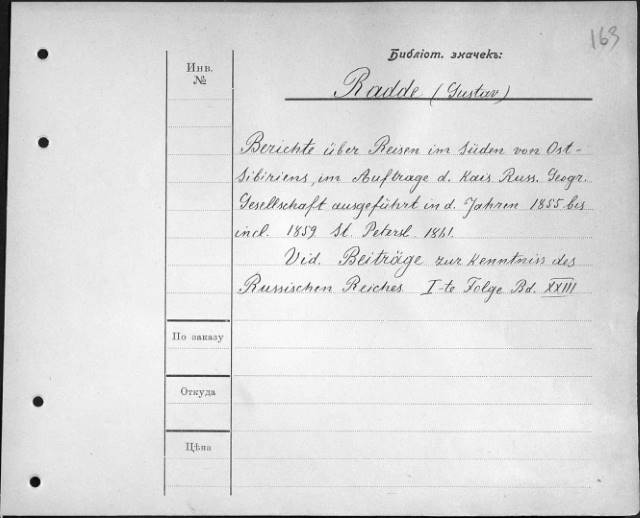 163
Библіот. значекъ:
Инв.
№
Radde (Gustav)
Berichte über Reisen im Süden von Ost-
Sibiriens, im Auftrage d. Kais. Russ. Geogr.
Gesellschaft ausgeführt in d. Jahren 1855 bis
incl. 1859 St. Petersb. 1861.
Vid. Beiträge zur Kenntniss des
Russischen Reiches I-te Folge Bd. XXIII
По заказу
Откуда
Цѣна